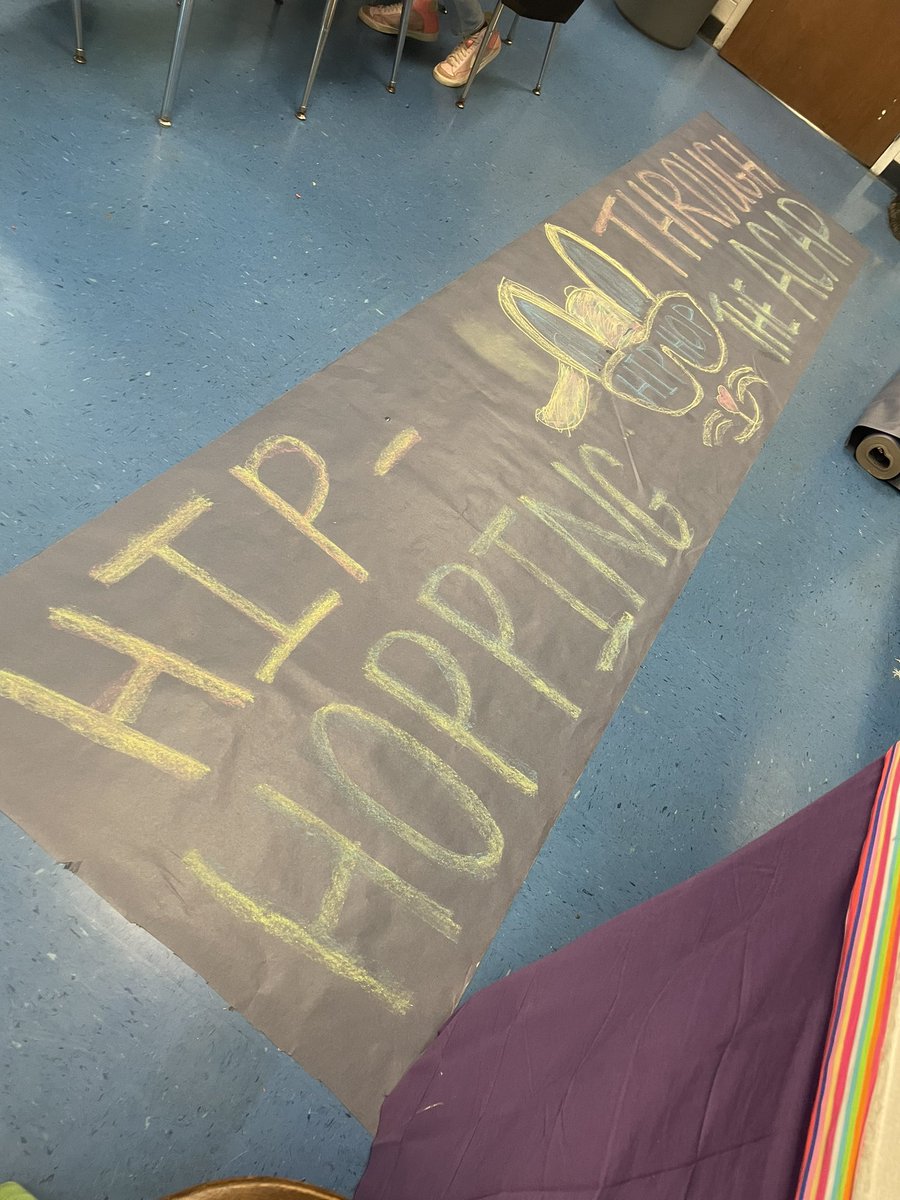 HIP-
HOPPING
HIP HOP
THROUGH
THE ACAP